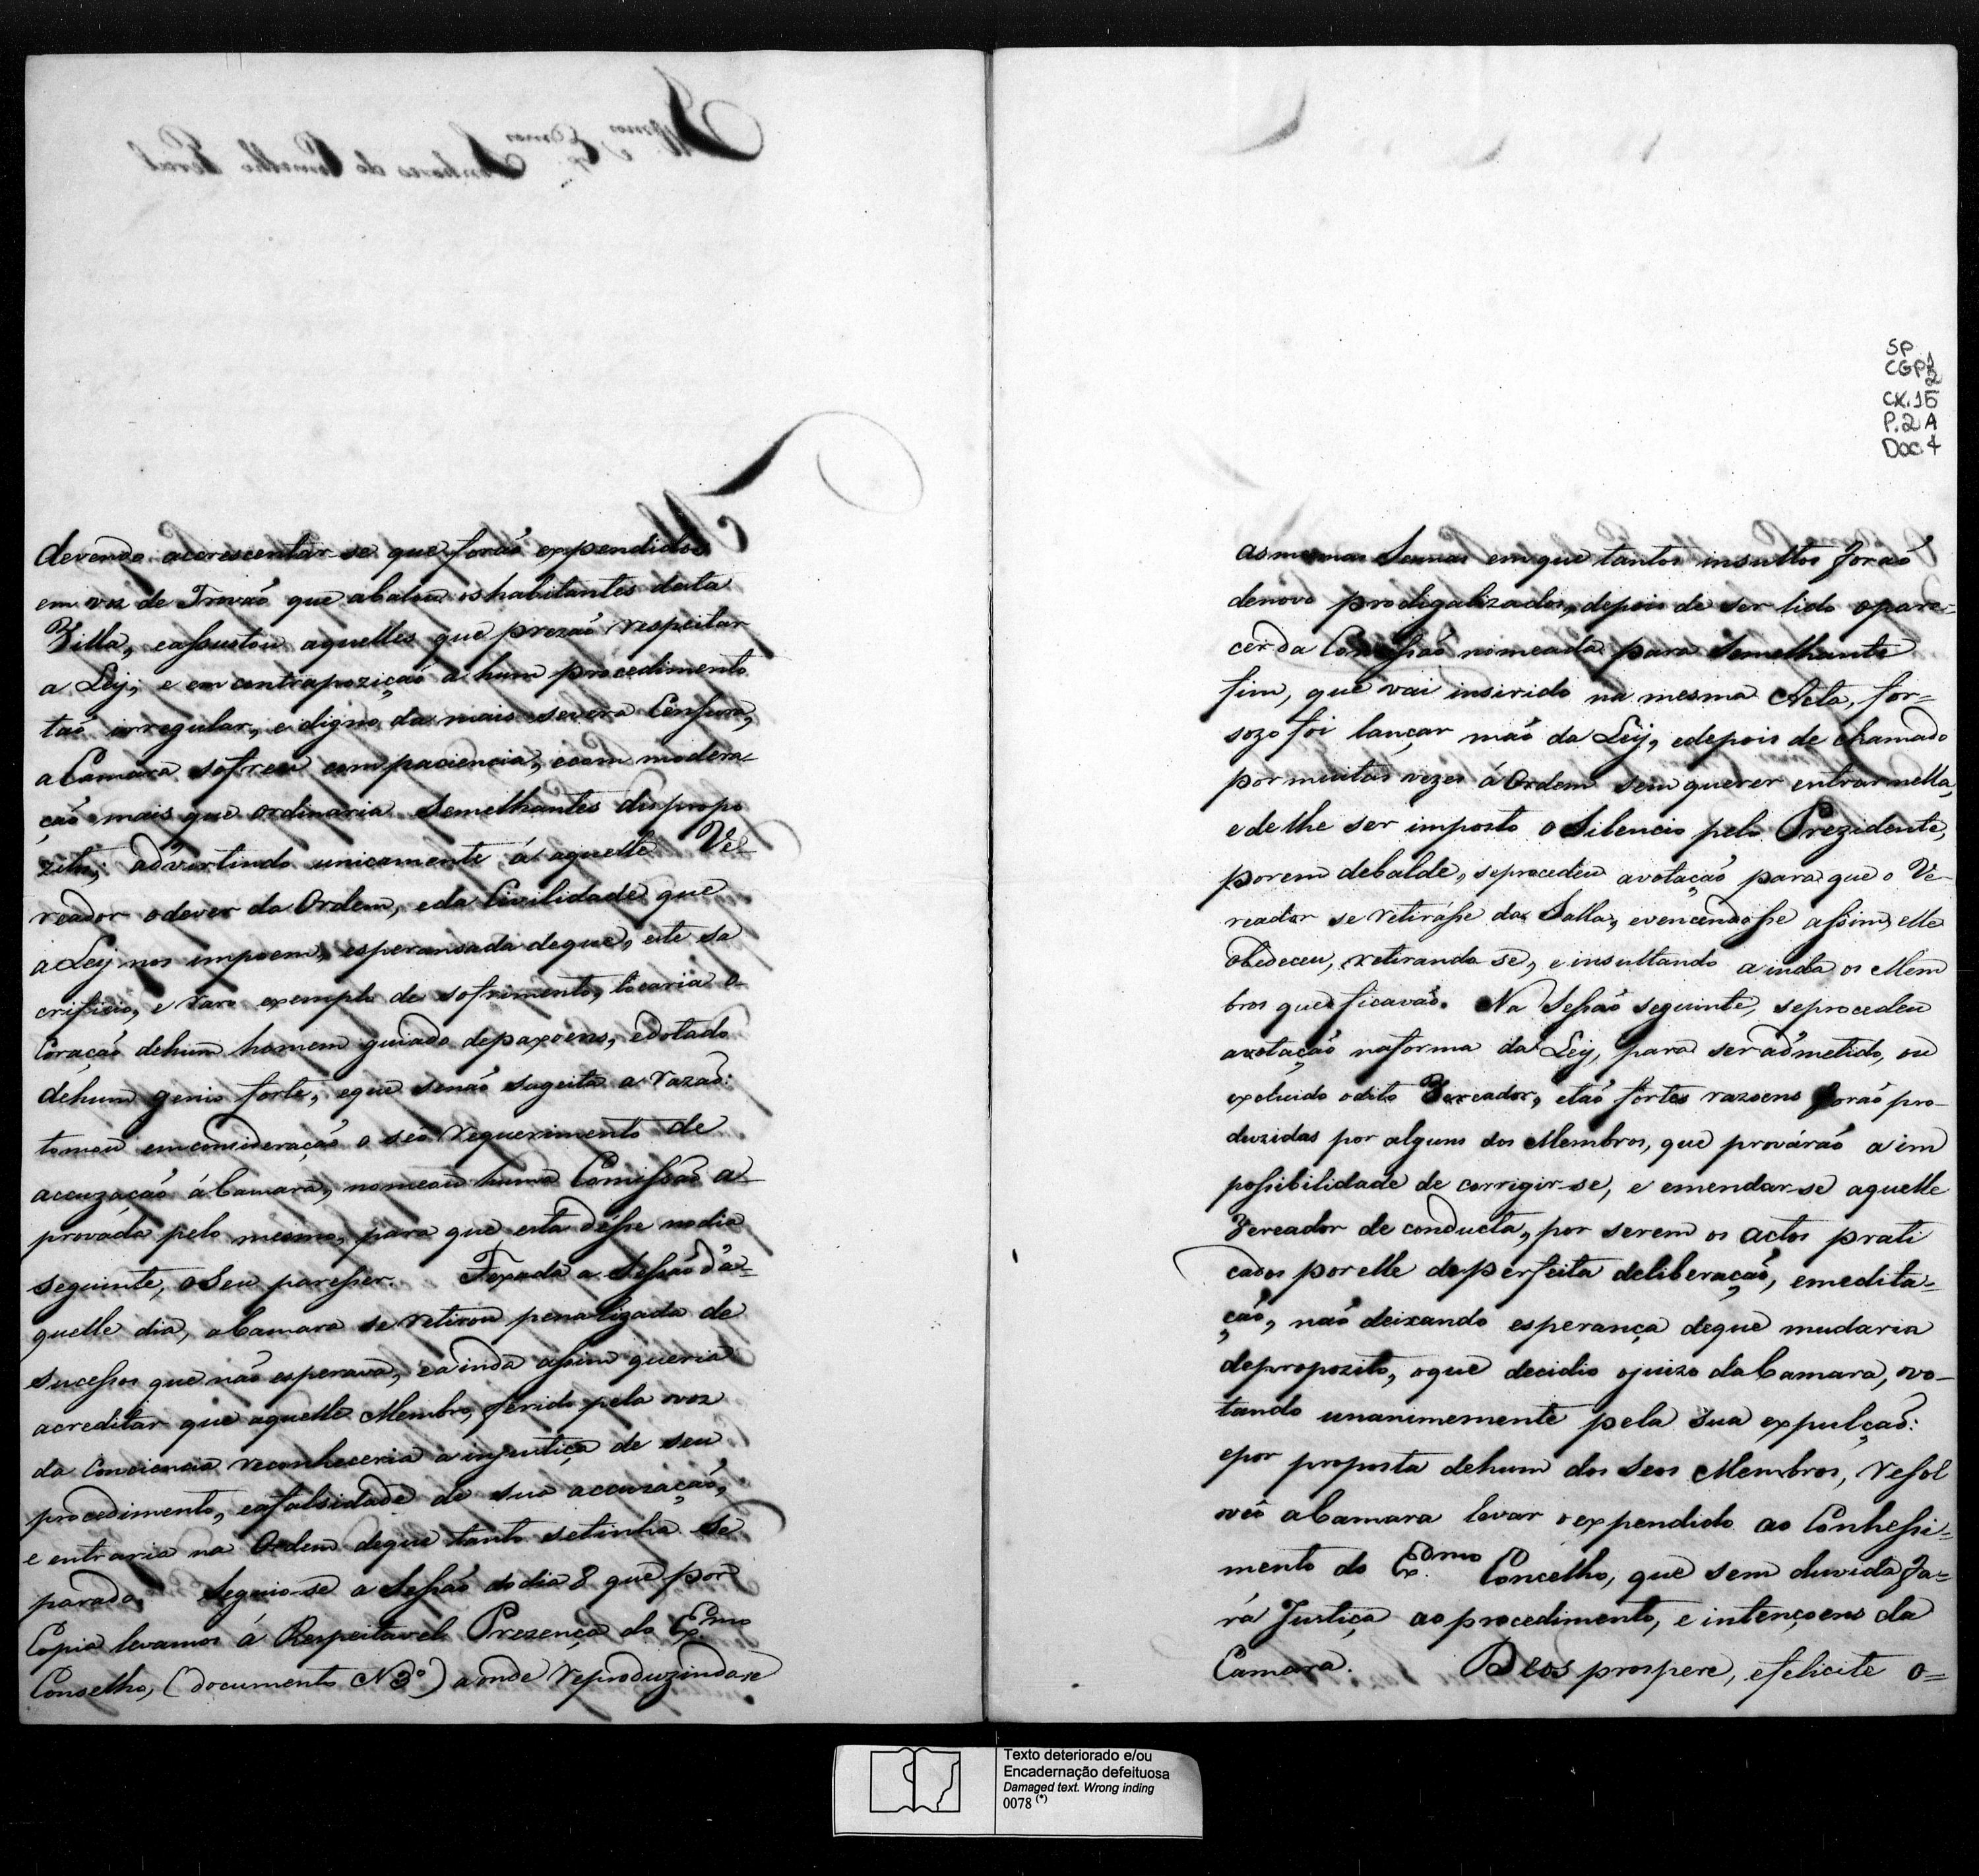 devendo acorescentar-se que foraõ expendidos
em voz de Trovaõ que abalou os habitantes desta
Villa, eassustou aquelles que prezaõ respeitar
a Ley; e em contrapoziçaõ a hum procedimento
taõ irregular, e digno da mais severa Censura,
a Camara sofreu com paciencia, ecom modera-
çaõ mais que ordinaria semelhantes dispropo
zitos, advertindo unicamente á aquelle Ve-
reador odever da Ordem, eda Civilidade que
a Ley nos impoem, esperansada deque, este sa
crificio, e raro exemplo de sofrimento, tocaria o
Coraçaõ dehum homem guiado depaxoens, edotado
dehum genio forte, eque senaõ sugeita a razaõ:
tomou emconsideraçaõ o seo requerimento de
accuzaçaõ áCamara, nomeou huma Comissaõ a-
provada pelo mesmo, para que esta désse nodia
seguinte, oSeu paresser. Fexada a Sessaõ d'a-
quelle dia, aCamara se retirou penalizada de
sucessos que naõ esperava, eainda assim queria
acreditar que aquelle Membro, ferido pela voz
da Conciencia reconheceria a injustiça de seu
procedimento, eafalsidade de sua accuzaçaõ,
e entraria na Ordem deque tanto setinha se
parado. Seguio-se a Sessaõ dodia 8 que por
Copia levamos á Respeitavel Prezença do Exmo
Conselho, (documento N 3º) aonde reproduzindose
SP
CGP1
2
CX.15
P.2A
Doc.4
asmesmas Scenas emque tantos insultos foraõ
denovo prodigalizados, depois de ser lido opare-
cer da Comissaõ nomeada para Semelhante
fim, que vai insirido na mesma Acta, for-
sozo foi lançar maõ da Ley, edepois de chamado
por muitas vezes á Ordem sem querer entrar nella,
e de lhe ser imposto o Silencio pelo Prezidente,
porem debalde, seprocedeu avotaçaõ para que o Ve-
reador se retirásse da Salla, evencendosse assim, elle
obedeceu, retirando se, e insultando ainda os Mem
bros que ficavaõ. Na Sessaõ seguinte, seprocedeu
avotaçaõ naforma da Ley, para ser admetido, ou
excluido odito Vereador, etaõ fortes razoens foraõ pro-
duzidas por alguns dos Membros, que prováraõ a im
possibilidade de corrigir-se, e emendar-se aquelle
Vereador de conducta, por serem os actos prati
cados por elle de perfeita deliberaçaõ, emedita-
çaõ, naõ deixando esperança deque mudaria
depropozito, oque decidio ojuizo daCamara, vo-
tando unanimemente pela sua expulçaõ:
epor proposta dehum dos Seos Membros, resol
veo aCamara levar oexpendido ao Conhessi-
mento do Exmo Concelho, que sem duvida fa-
rá Justiça ao procedimento, e intençoens da
Camara. Deos prospere, efelicite o=
Texto deteriorado e/ou
Encadernação defeituosa
Damaged text. Wrong inding
0078 (*)